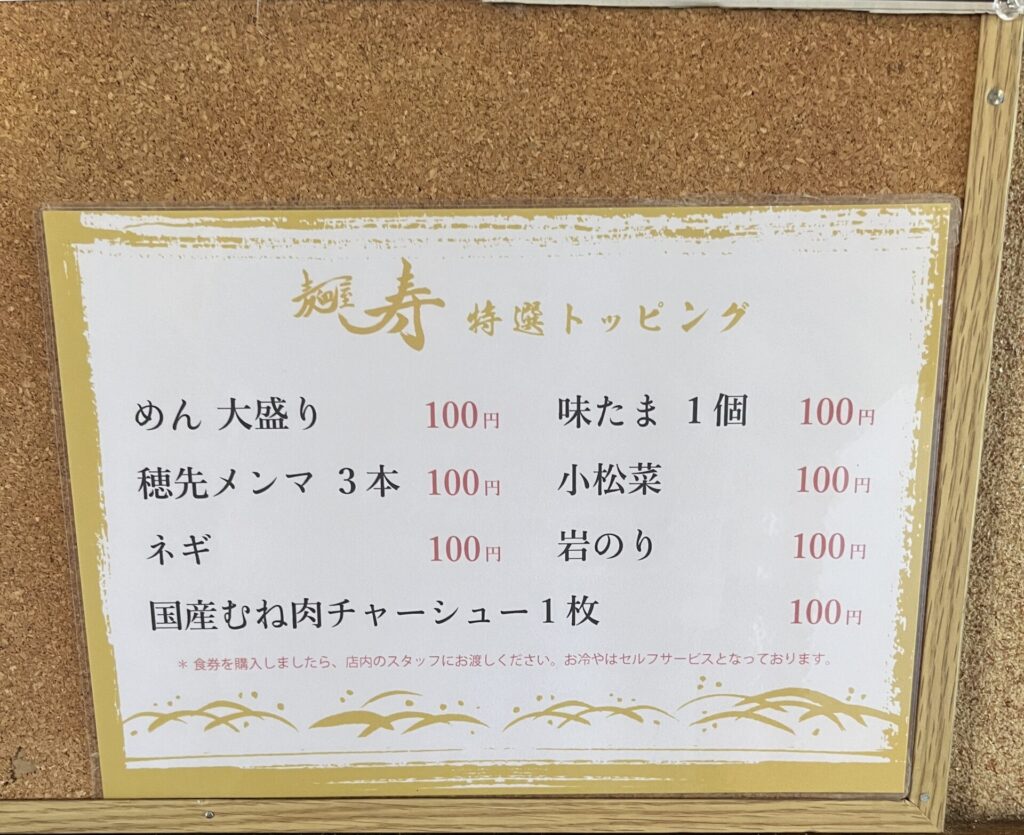 麺屋 寿 特選トッピング
めん 大盛り 100円 味たま 1個 100円
穂先メンマ 3本 100円 小松菜 100円
ネギ 100円 岩のり 100円
国産むね肉チャーシュー1枚 100円
＊食券を購入しましたら、店内のスタッフにお渡しください。お冷やはセルフサービスとなっております。